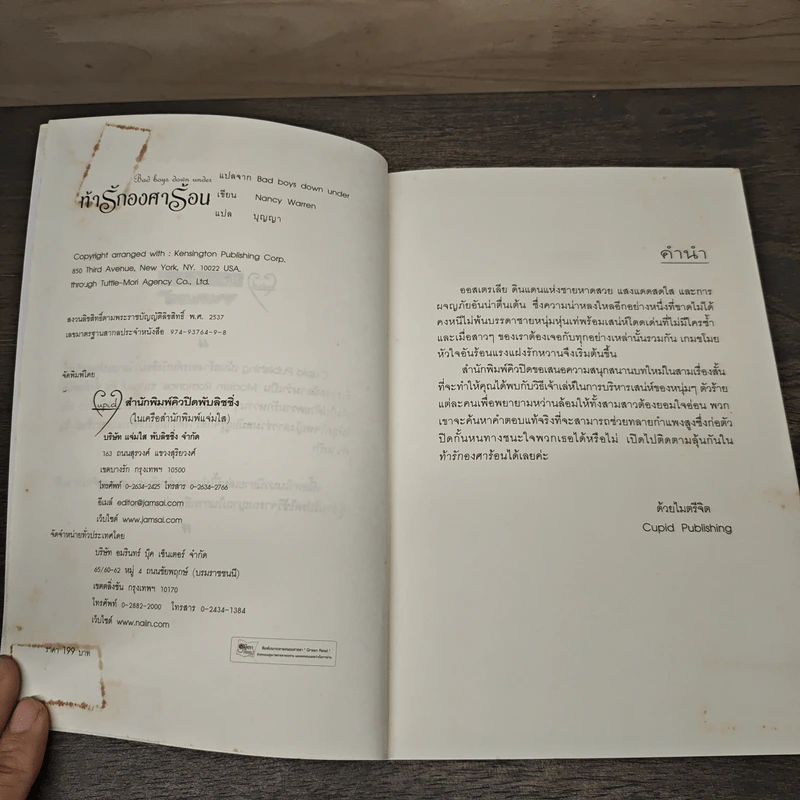 Bad boys down under
ท้ารักองศาร้อน
แปลจาก Bad boys down under
เขียน Nancy Warren
แปล บุญญา
Copyright arranged with : Kensington Publishing Corp.
850 Third Avenue, New York, NY. 10022 USA.
through Tuttle-Mori Agency Co., Ltd.
สงวนลิขสิทธิ์ตามพระราชบัญญัติลิขสิทธิ์ พ.ศ. 2537
เลขมาตรฐานสากลประจำหนังสือ 974-93764-9-8
จัดพิมพ์โดย
Cupid
สำนักพิมพ์คิวปิดพับลิชชิ่ง
(ในเครือสำนักพิมพ์แจ่มใส)
บริษัท แจ่มใส พับลิชชิ่ง จำกัด
163 ถนนสุรวงศ์ แขวงสุริยวงศ์
เขตบางรัก กรุงเทพฯ 10500
โทรศัพท์ 0-2634-2425 โทรสาร 0-2634-2766
อีเมล์ editor@jamsai.com
เว็บไซต์ www.jamsai.com
จัดจำหน่ายทั่วประเทศโดย
บริษัท อมรินทร์ บุ๊ค เซ็นเตอร์ จำกัด
65/60-62 หมู่ 4 ถนนชัยพฤกษ์ (บรมราชชนนี)
เขตตลิ่งชัน กรุงเทพฯ 10170
โทรศัพท์ 0-2882-2000 โทรสาร 0-2434-1384
เว็บไซต์ www.naiin.com
ราคา 199 บาท
คำนำ
ออสเตรเลีย ดินแดนแห่งชายหาดสวย แสงแดดสดใส และการ
ผจญภัยอันน่าตื่นเต้น ซึ่งความน่าหลงใหลอีกอย่างหนึ่งที่ขาดไม่ได้
คงหนีไม่พ้นบรรดาชายหนุ่มหุ่นเท่พร้อมเสน่ห์โดดเด่นที่ไม่มีใครซ้ำ
และเมื่อสาวๆ ของเราต้องเจอกับทุกอย่างเหล่านั้นรวมกัน เกมขโมย
หัวใจอันร้อนแรงแฝงรักหวานจึงเริ่มต้นขึ้น
สำนักพิมพ์คิวปิดขอเสนอความสนุกสนานบทใหม่ในสามเรื่องสั้น
ที่จะทำให้คุณได้พบกับวิธีเจ้าเล่ห์ในการบริหารเสน่ห์ของหนุ่มๆ ตัวร้าย
แต่ละคนเพื่อพยายามหว่านล้อมให้ทั้งสามสาวต้องยอมใจอ่อน พวก
เขาจะค้นหาคำตอบแท้จริงที่จะสามารถช่วยทลายกำแพงสูงซึ่งก่อตัว
ปิดกั้นหนทางชนะใจพวกเธอได้หรือไม่ เปิดไปติดตามลุ้นกันใน
ท้ารักองศาร้อนได้เลยค่ะ
ด้วยไมตรีจิต
Cupid Publishing